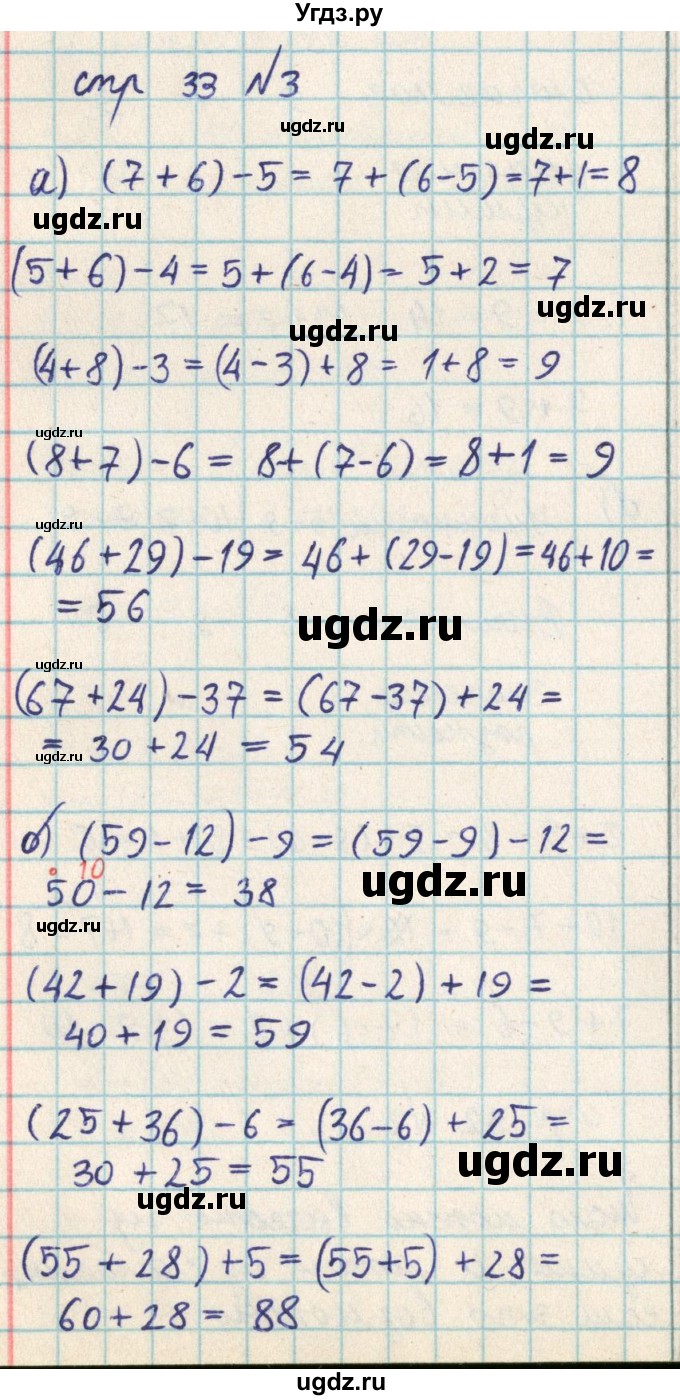 Угдз.ру
стр 33 №3
ugdz.ru
ugdz.ru
а) (7+6)-5= 7+(6-5)=7+1=8
ugdz.ru
(5+6)-4=5+(6-4)= 5+2=7
ugdz.ru
ugdz.ru
(4+8)-3=(4-3)+8= 1+8=9
ugdz.ru
(8+7)-6= 8+(7-6)=8+1=9
ugdz.ru
(46+29)-19= 46+(29-19)=46+10=
=56
ugdz.ru
ugdz.ru
(67+24)-37=(67-37)+24=
= 30+24=54
ugdz.ru
б) (59-12)-9=(59-9)-12=
10
50-12=38
ugdz.ru
ugdz.ru
(42+19)-2=(42-2)+19=
40+19=59
(25+36)-6=(36-6)+25=
ugdz.ru
30+25=55
ugdz.ru
(55+28)+5=(55+5)+28=
60+28=88
ugdz.ru